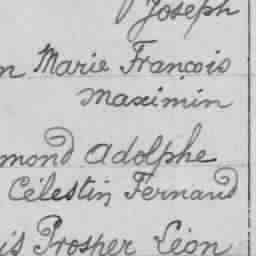 Joseph
n Marie François
Maximin
mond Adolphe
Célestin Fernand
is Prosper Léon